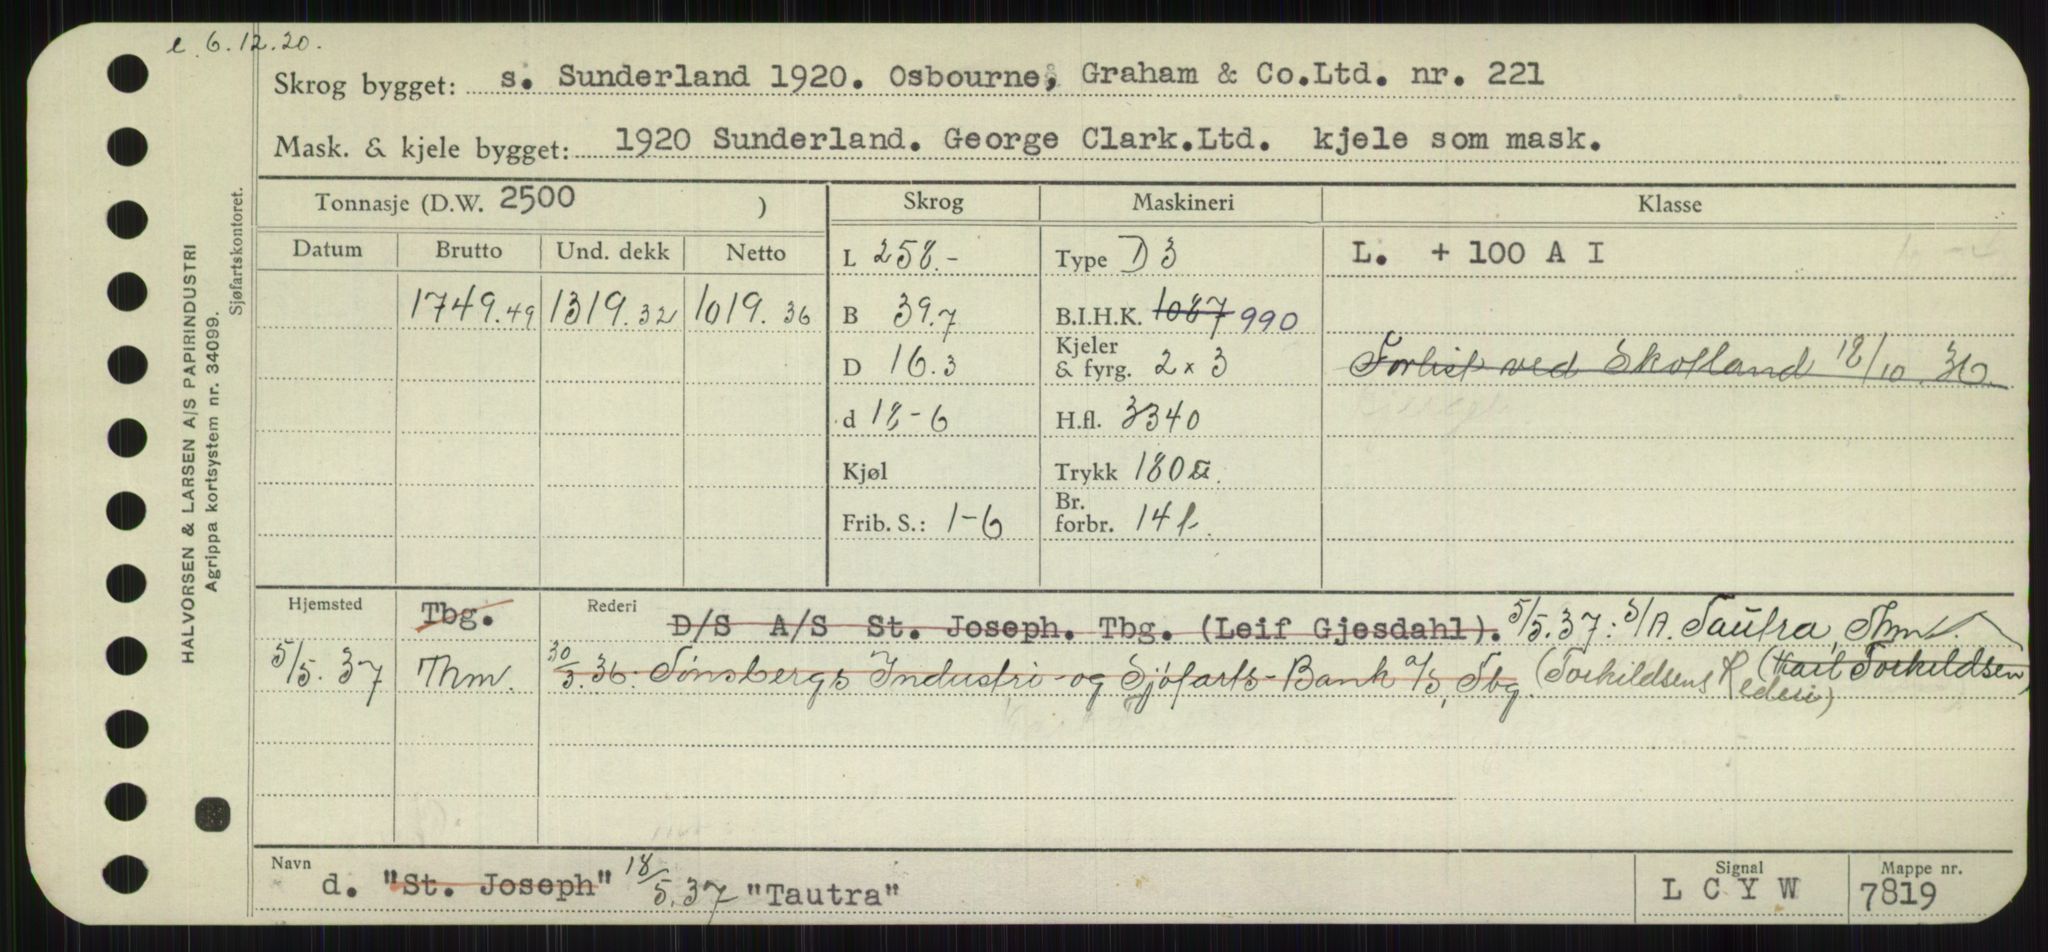 e. 6.12.20.
Skrog bygget: s. Sunderland 1920. Osbourne, Graham & Co.Ltd. nr. 221
Mask. & kjele bygget: 1920 Sunderland. George Clark.Ltd. kjele som mask.
HALVORSEN & LARSEN A/S PAPIRINDUSTRI
Agrippa kortsystem nr. 34099.
Sjøfartskontoret.
Tonnasje (D.W. 2500 ) Skrog Maskineri Klasse
Datum Brutto Und. dekk Netto L 258.- Type D 3 L. + 100 A I
1749.49 1319.32 1019.36 B 39.7 B.I.H.K. 1087 990
D 16.3 Kjeler & fyrg. 2 x 3 Forlist ved Skotland 18/10.36.
d 18-6 H.fl. 3340
Kjøl Trykk 180
Frib. S.: 1-6 Br. forbr. 14 t.
Hjemsted Tbg. Rederi D/S A/S St. Joseph. Tbg. (Leif Gjesdahl). 5/5.37: S/A. Tautra, Thm.
5/5.37 Thm. 30/3.36. Tønsbergs Industri- og Sjøfarts-Bank a/s, Tbg. (Torkildsens Rederi) (Karl Torkildsen)
Navn d. "St. Joseph" 18/5.37 "Tautra" Signal L C Y W Mappe nr. 7819